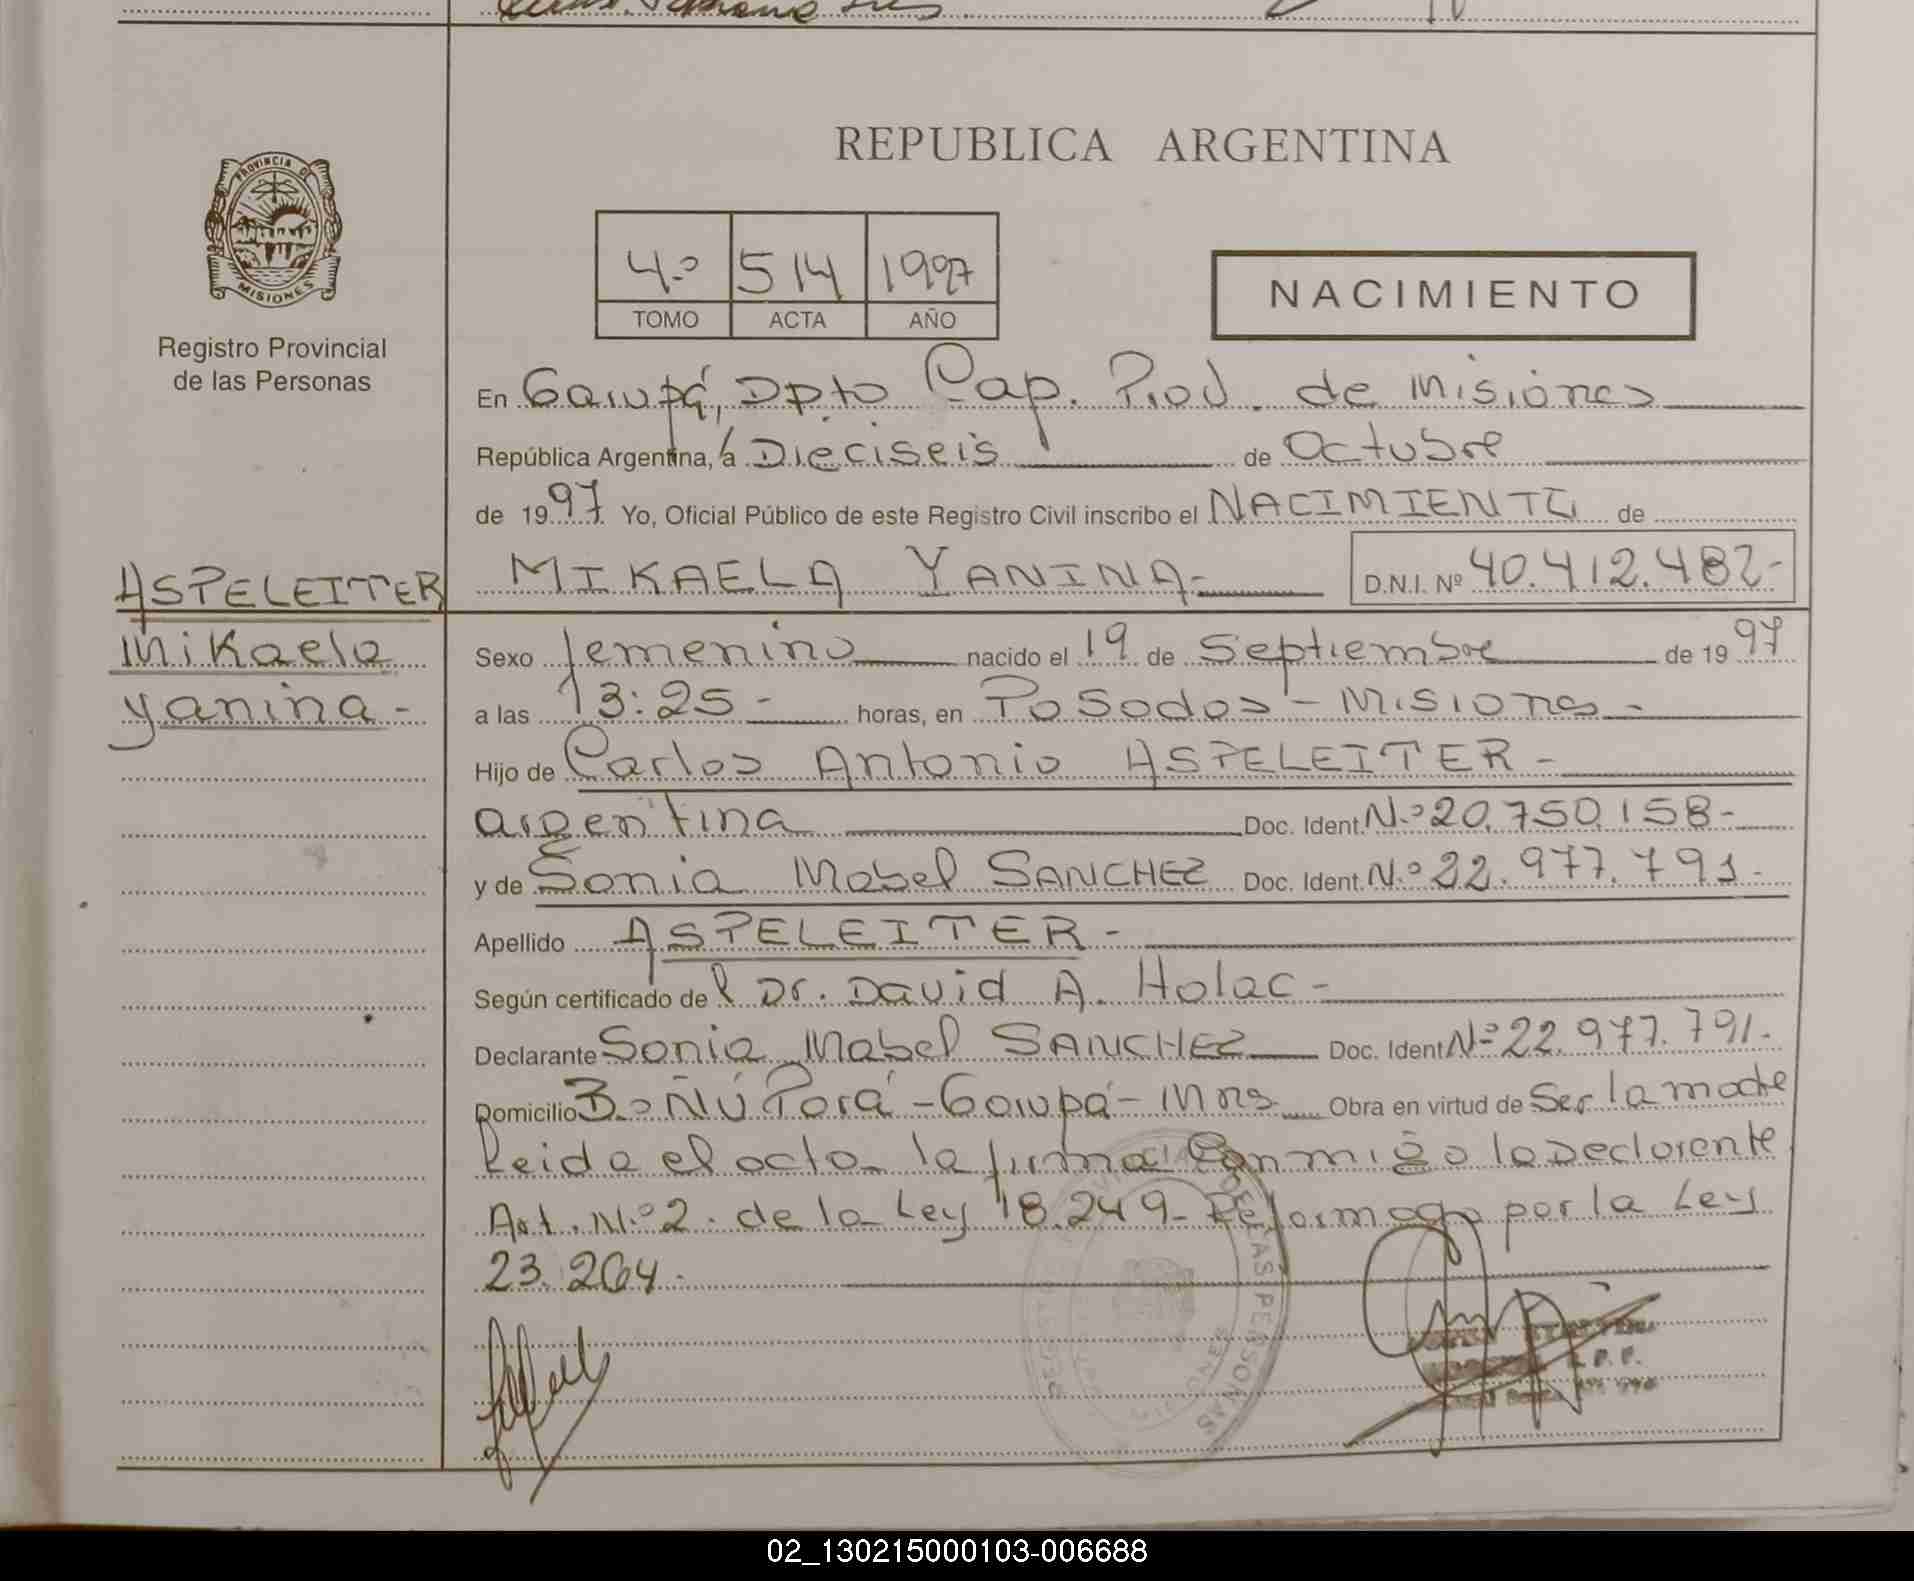 REPUBLICA ARGENTINA
PROVINCIA D
MISIONES
Registro Provincial
de las Personas
4.º 514 1997
TOMO ACTA AÑO
NACIMIENTO
En Garupá, Dpto Cap. Prov. de Misiones
República Argentina, a Dieciseis de Octubre
de 1997 Yo, Oficial Público de este Registro Civil inscribo el NACIMIENTO de
MIKAELA YANINA- D.N.I. Nº 40.412.482-
ASPELEITER
Mikaela
Yanina-
Sexo femenino nacido el 19 de Septiembre de 1997
a las 13:25- horas, en Posadas - Misiones-
Hijo de Carlos Antonio ASPELEITER-
argentina Doc. Ident. N.º 20.750.158-
y de Sonia Mabel SANCHEZ Doc. Ident. N.º 22.977.791-
Apellido ASPELEITER-
Según certificado del Dr. David A. Holac-
Declarante Sonia Mabel SANCHEZ Doc. Ident. Nº 22.977.791-
Domicilio B.º Ñú Porá - Garupá - Mnes Obra en virtud de Ser la madre
Leida el acta la firma Conmigo la Declarente
Art. N.º 2. de la Ley 18.249- Reformago por la Ley
23.264-
DE LAS PERSONAS
MISIONES
02_130215000103-006688